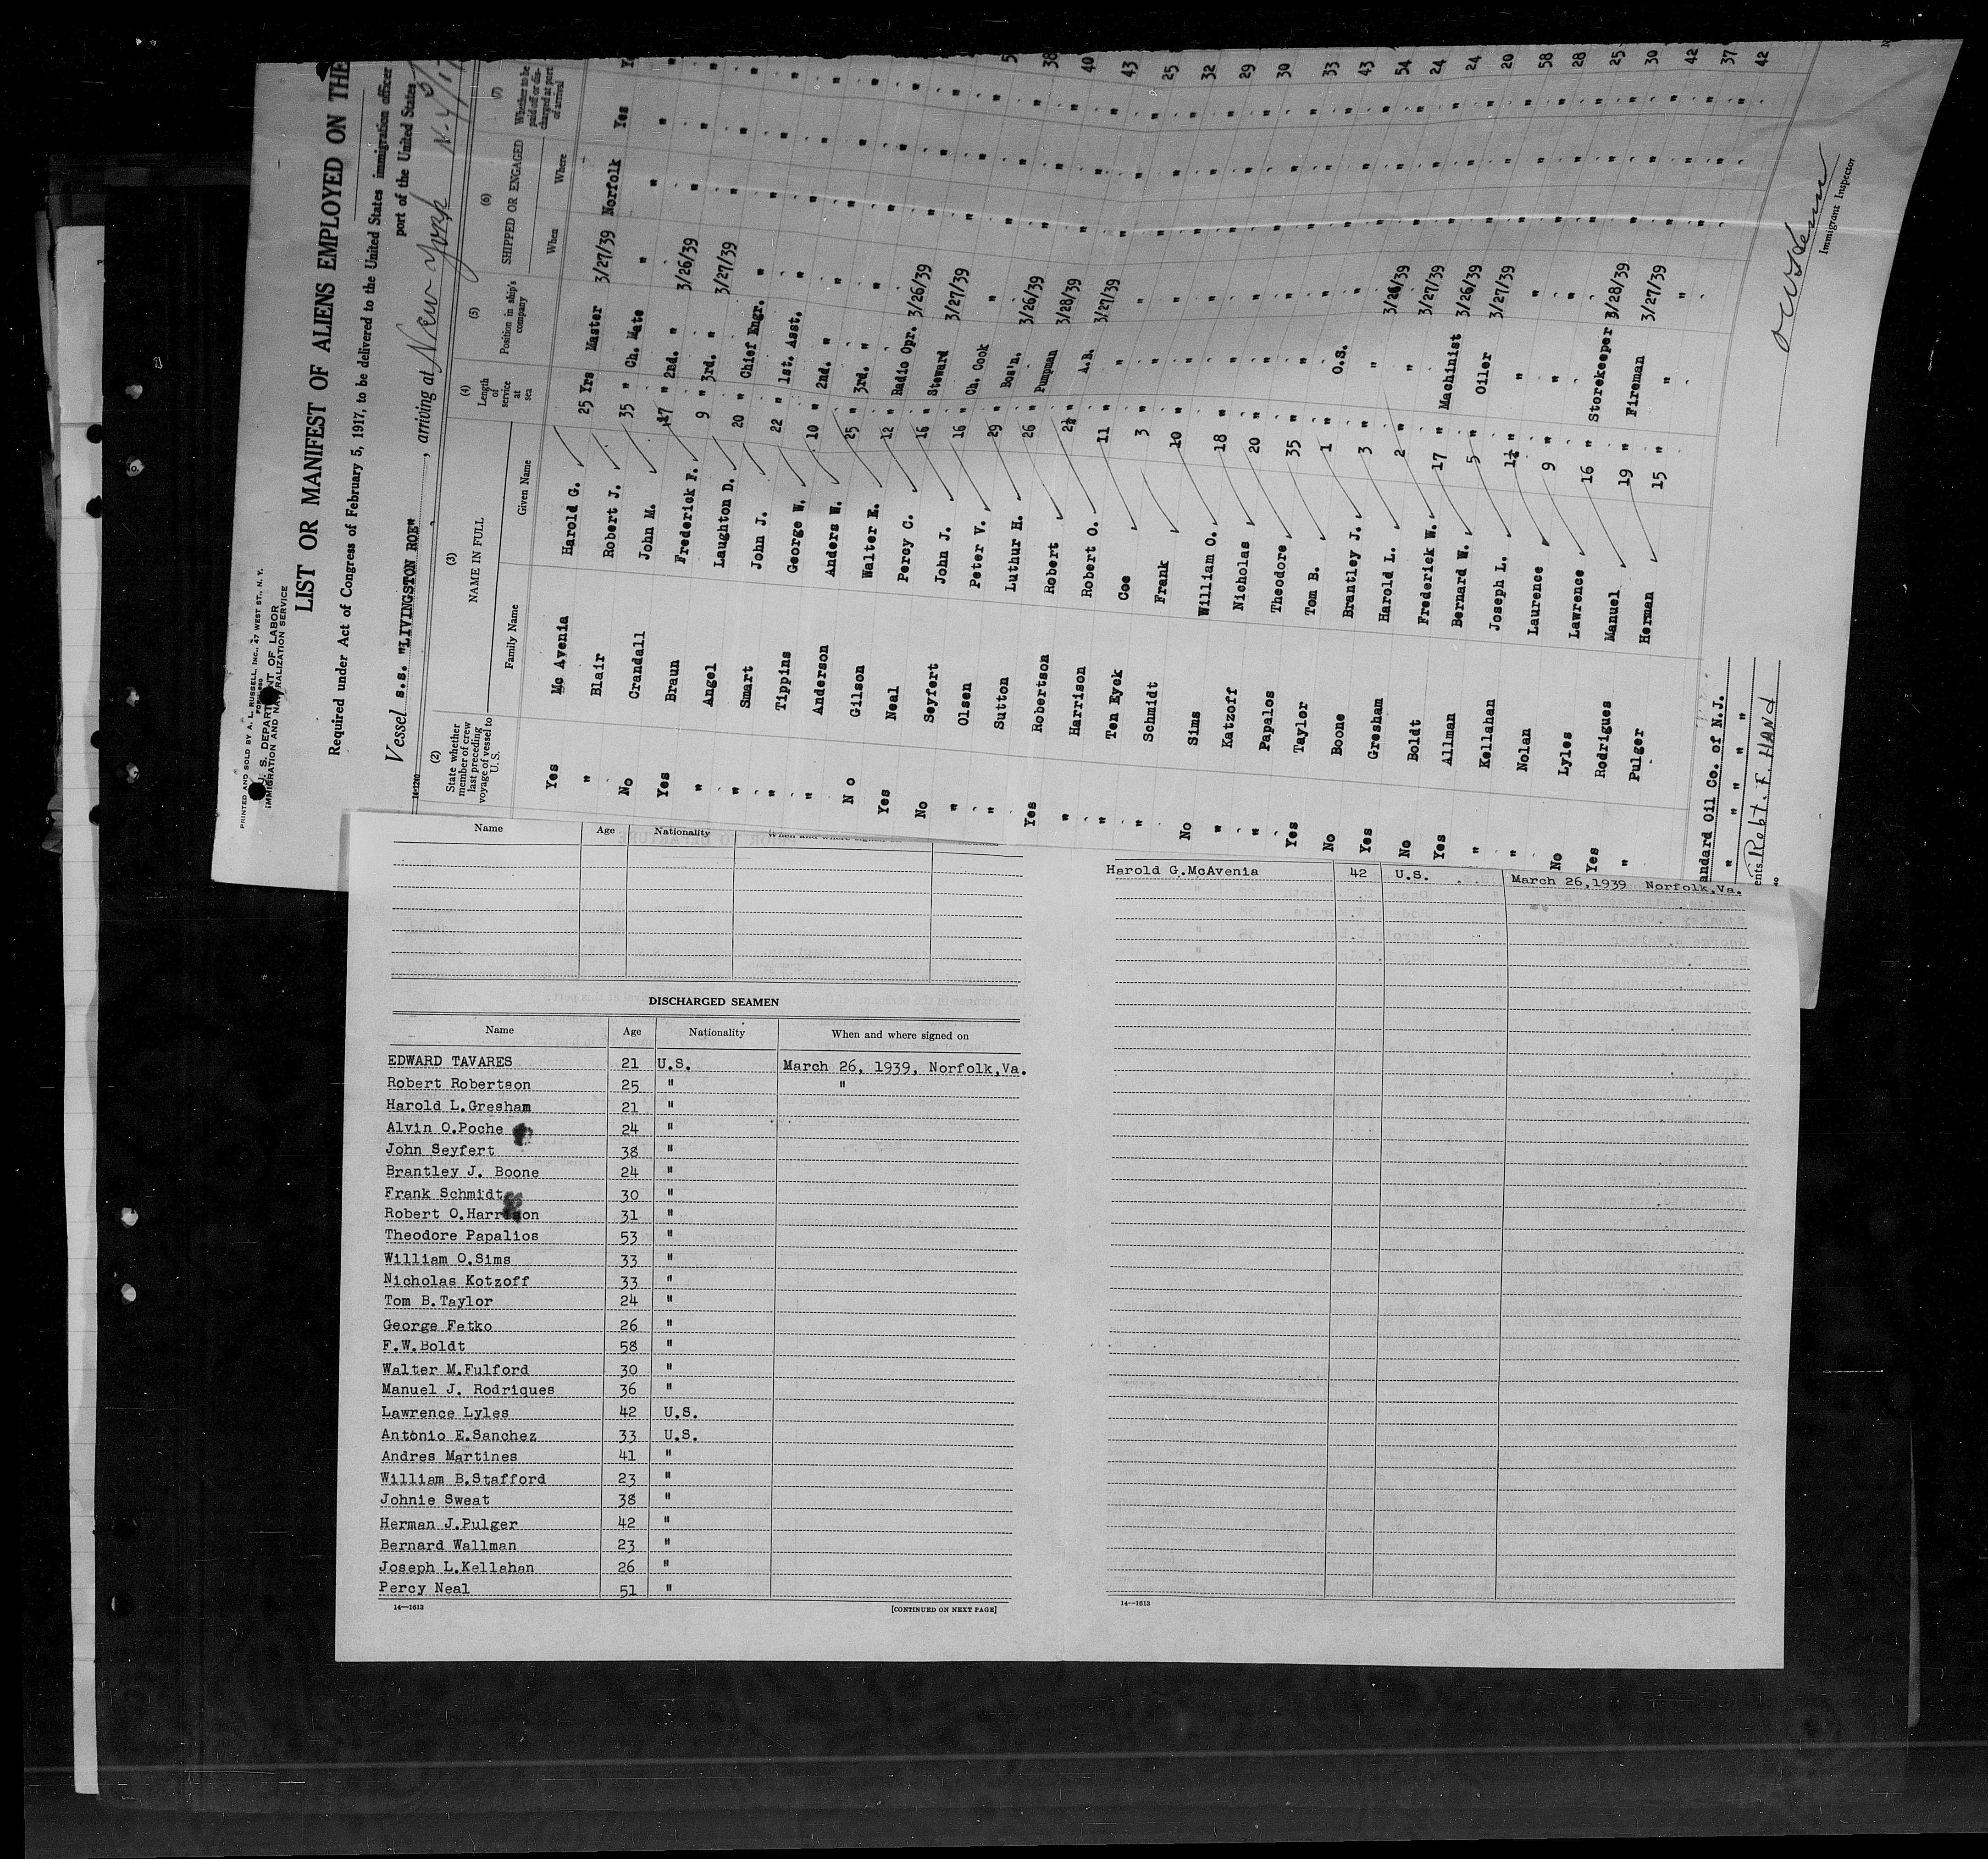 PRINTED AND SOLD BY A. L. RUSSELL, INC., 47 WEST ST., N. Y.
U. S. DEPARTMENT OF LABOR
IMMIGRATION AND NATURALIZATION SERVICE
LIST OR MANIFEST OF ALIENS EMPLOYED ON THE
Required under Act of Congress of February 5, 1917, to be delivered to the United States immigration officer
port of the United States
Vessel S.S. "LIVINGSTON ROE", arriving at New York N-Y
14-1240
(2) (3) (4) (5) (6) (7)
State whether member of crew last preceding voyage of vessel to U. S.
NAME IN FULL
Family Name Given Name
Length of service at sea
Position in ship's company
SHIPPED OR ENGAGED
When Where
Whether to be paid off or discharged at port of arrival
Yes Mc Avenia Harold G. 25 Yrs Master 3/27/39 Norfolk Yes
" Blair Robert J. 35 " Ch. Mate " " "
No Crandall John M. 17 " 2nd. " 3/26/39 " "
Yes Braun Frederick F. 9 " 3rd. " 3/27/39 " "
" Angel Laughton D. 20 " Chief Engr. " " "
" Smart John J. 22 " 1st. Asst. " " "
" Tippins George W. 10 " 2nd. " " " "
" Anderson Anders W. 25 " 3rd. " " " "
No Gilson Walter E. 12 " Radio Opr. 3/26/39 " "
Yes Neal Percy C. 16 " Steward 3/27/39 " "
No Seyfert John J. 16 " Ch. Cook " " "
" Olsen Peter V. 29 " Bos'n. 3/26/39 " "
" Sutton Luthur H. 26 " Pumpman 3/28/39 " "
Yes Robertson Robert 2½ " A.B. 3/27/39 " "
" Harrison Robert O. 11 " " " " "
" Ten Eyck Coe 3 " " " " "
" Schmidt Frank 10 " " " " "
No Sims William O. 18 " " " " "
" Katzoff Nicholas 20 " " " " "
" Papalos Theodore 35 " " " " "
Yes Taylor Tom B. 1 " O.S. " " "
No Boone Brantley J. 3 " " 3/26/39 " "
Yes Gresham Harold L. 2 " " 3/27/39 " "
No Boldt Frederick W. 17 " Machinist 3/26/39 " "
Yes Allman Bernard W. 5 " Oiler 3/27/39 " "
" Kellahan Joseph L. " " " " "
" Nolan Laurence 9 " " " " "
No Lyles Lawrence 16 " Storekeeper 3/28/39 " "
Yes Rodrigues Manuel 19 " Fireman 3/27/39 " "
" Pulger Herman 15 " " " " "
38
40
43
25
32
29
30
33
43
54
24
24
20
58
28
25
30
42
37
42
andard Oil Co. of N.J.
" " " " "
ents Robt. F. HANd
Immigrant Inspector
Name Age Nationality When and where signed on
DISCHARGED SEAMEN
Name Age Nationality When and where signed on
EDWARD TAVARES 21 U.S. March 26, 1939, Norfolk,Va.
Robert Robertson 25 " "
Harold L.Gresham 21 "
Alvin O.Poche 24 "
John Seyfert 38 "
Brantley J. Boone 24 "
Frank Schmidt 30 "
Robert O.Harrison 31 "
Theodore Papalios 53 "
William O.Sims 33 "
Nicholas Kotzoff 33 "
Tom B.Taylor 24 "
George Fetko 26 "
F.W.Boldt 58 "
Walter M.Fulford 30 "
Manuel J. Rodriques 36 "
Lawrence Lyles 42 U.S.
Antonio E.Sanchez 33 U.S.
Andres Martines 41 "
William B.Stafford 23 "
Johnie Sweat 38 "
Herman J.Pulger 42 "
Bernard Wallman 23 "
Joseph L.Kellahan 26 "
Percy Neal 51 "
14—1613 [CONTINUED ON NEXT PAGE]
Harold G.McAvenia 42 U.S. March 26,1939 Norfolk,Va.
14—1613